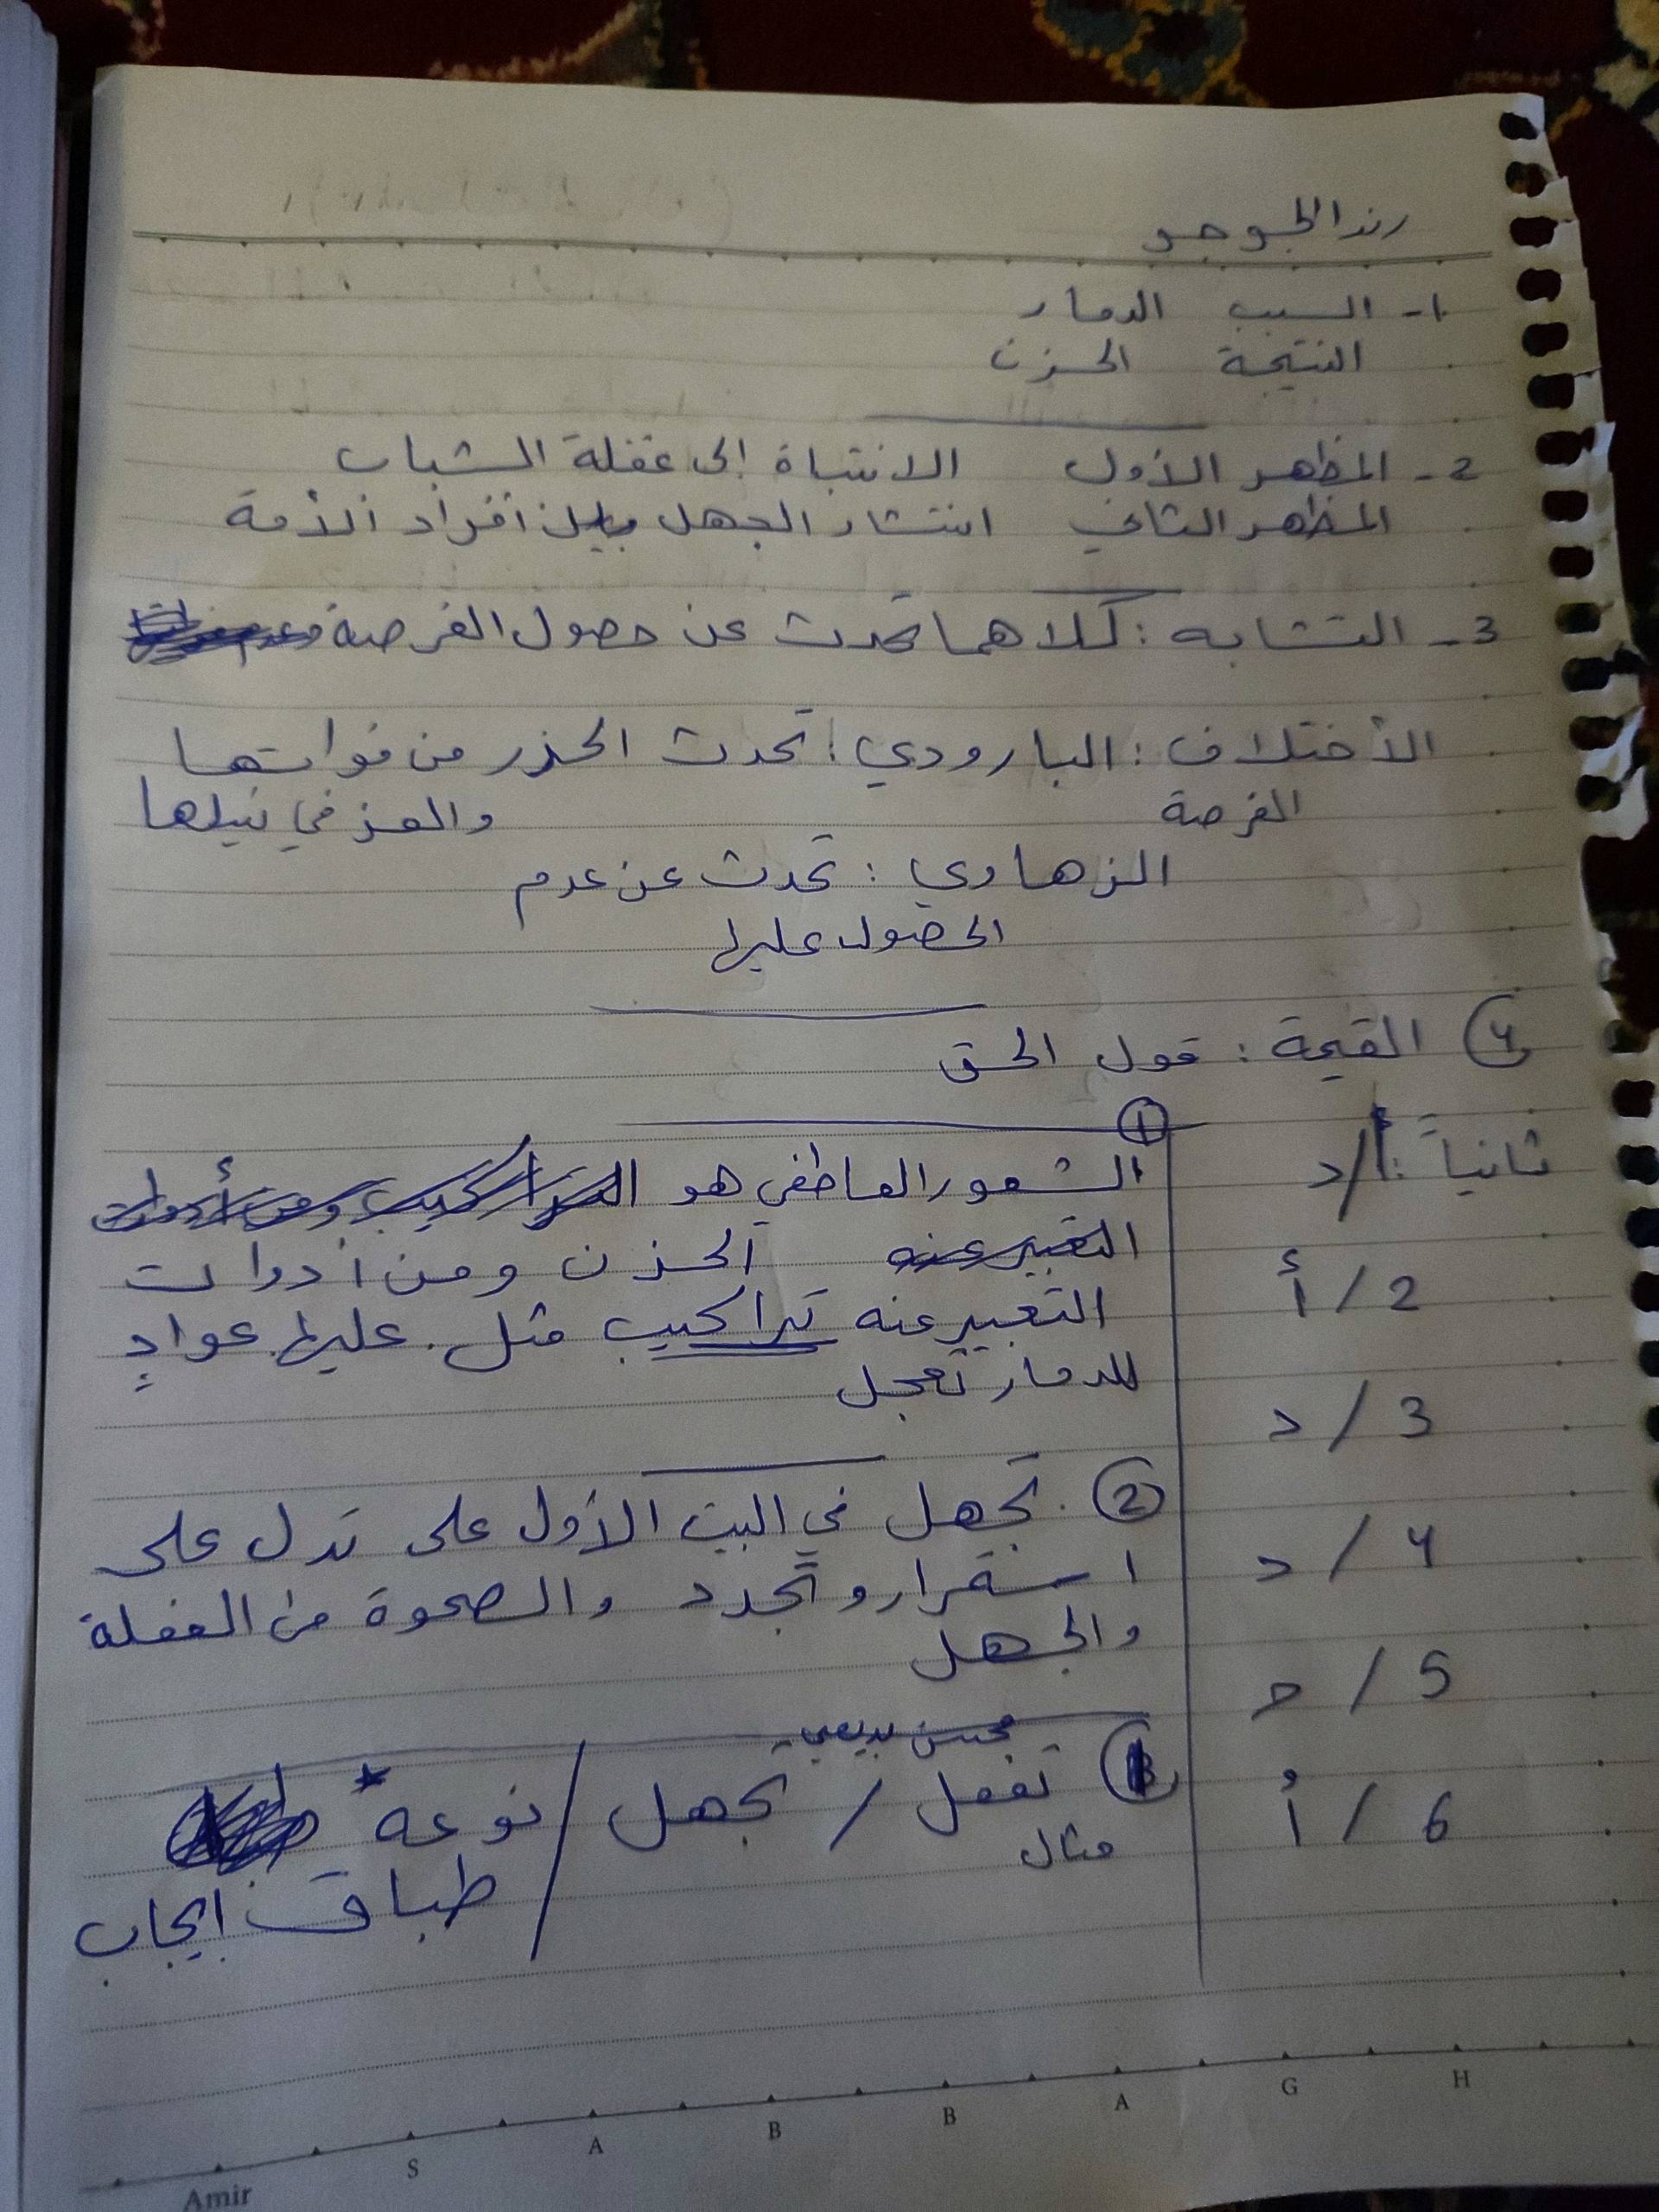 رند الجوجو
1- السبب الدمار
النتيجة الحزن
2- المظهر الأول الانتباة إلى غفلة الشباب
المظهر الثاني انتشار الجهل بين أفراد الأمة
3- التشابه: كلاهما تحدث عن حصول الفرصة
الأختلاف: البارودي: تحدث الحذر من فواتها
الفرصة والعز في نيلها
الزهاوي: تحدث عن عدم
الحصول عليها
4 القيمة: قول الحق
ثانياً: 1/د
2/أ
3/د
4/د
5/ح
6/أ
1
الشعور العاطفي هو
التعبير عنه الحزن ومن أدوات
التعبير عنه تراكيب مثل. عليها عوادٍ
للدمار تعجل
2. تجهل في البيت الأول على تدل على
استمرار و تجدد والصحوة من الغفلة
والجهل
محسن بديعي
3 تعقل / تجهل / نوعه
مثال
طباق إيجاب
Amir S A B B A G H